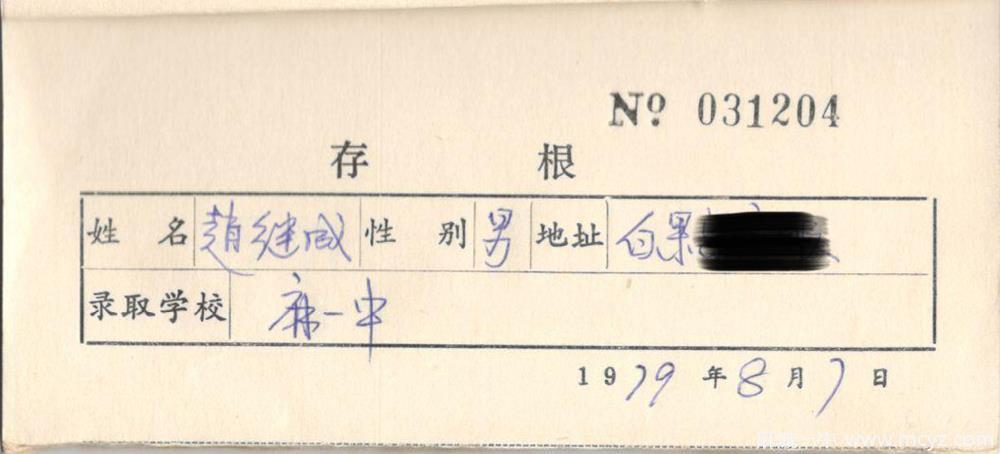 № 031204
存 根
姓 名 赵继成 性 别 男 地址 白果
录取学校 麻一中
1979 年 8 月 7 日
www.mcyz.com